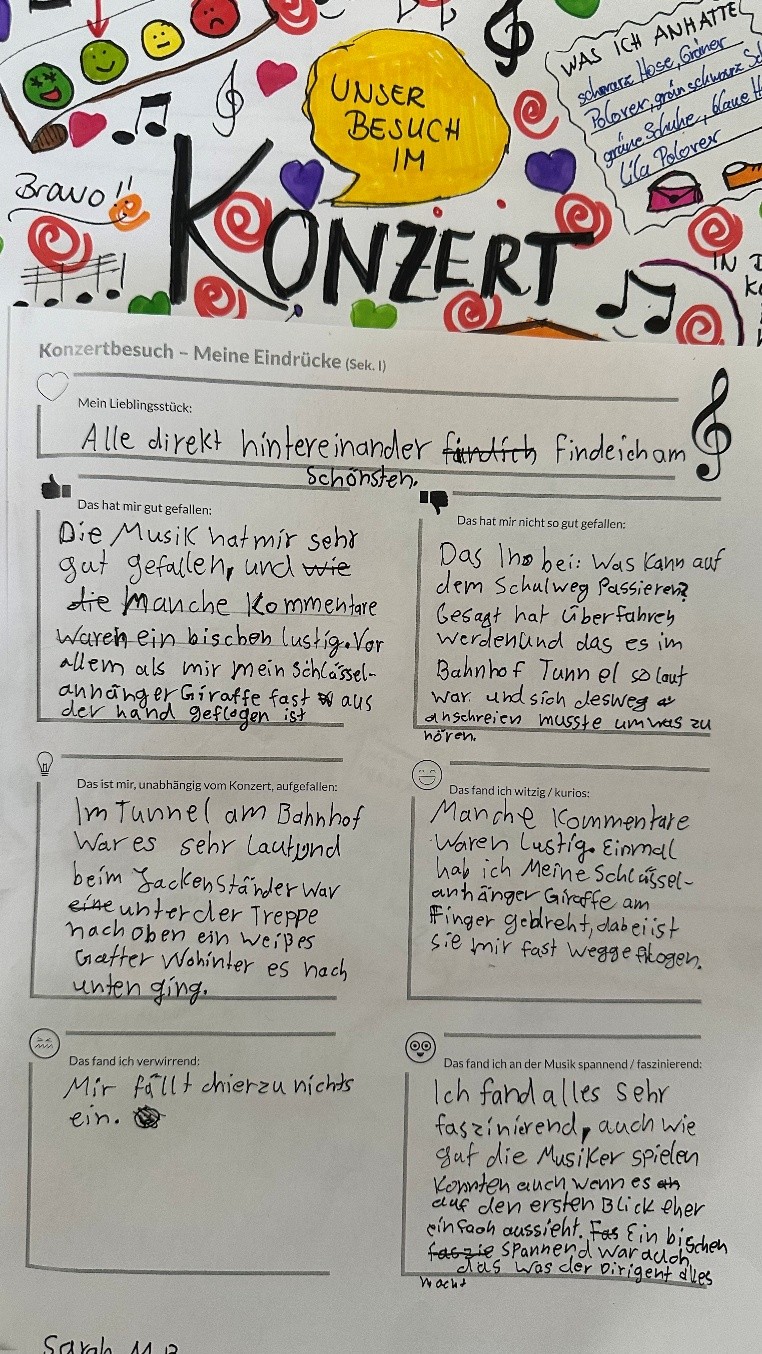 WAS ICH ANHATTE
schwarz Hose, Grüner
Polover, grün schwarz
grüne Schuhe, blaue
Lila Polover
UNSER
BESUCH
IM
Bravo!!
KONZERT
IN
Konzertbesuch – Meine Eindrücke (Sek. I)
Mein Lieblingsstück:
Alle direkt hintereinander findich findeich am
Schönsten.
Das hat mir gut gefallen:
Die Musik hat mir sehr
gut gefallen, und wie
die Manche Kommentare
waren ein bischen lustig. Vor
allem als mir mein Schlüssel-
anhänger Giraffe fast aus
der hand geflogen ist
Das hat mir nicht so gut gefallen:
Das Ino bei: Was kann auf
dem Schulweg Passieren?
Gesagt hat Überfahren
werden Und das es im
Bahnhof Tunnel so laut
war. und sich desweg
anschreien musste um was zu
hören.
Das ist mir, unabhängig vom Konzert, aufgefallen:
Im Tunnel am Bahnhof
War es sehr Laut und
beim Jackenständer war
eine unter der Treppe
nach oben ein weißes
Gatter Wohinter es nach
unten ging.
Das fand ich witzig / kurios:
Manche Kommentare
waren Lustig. Einmal
hab ich Meine Schlüssel-
anhänger Giraffe am
Finger gedreht, dabei ist
sie mir fast weggeflogen.
Das fand ich verwirrend:
Mir fällt hierzu nichts
ein.
Das fand ich an der Musik spannend / faszinierend:
Ich fand alles sehr
faszinierend, auch wie
gut die Musiker spielen
Konnten auch wenn es
auf den ersten Blick eher
einfach aussieht. Fas Ein bischen
faszie spannend war auch
das was der Dirigent alles
macht
Sarah M.B.